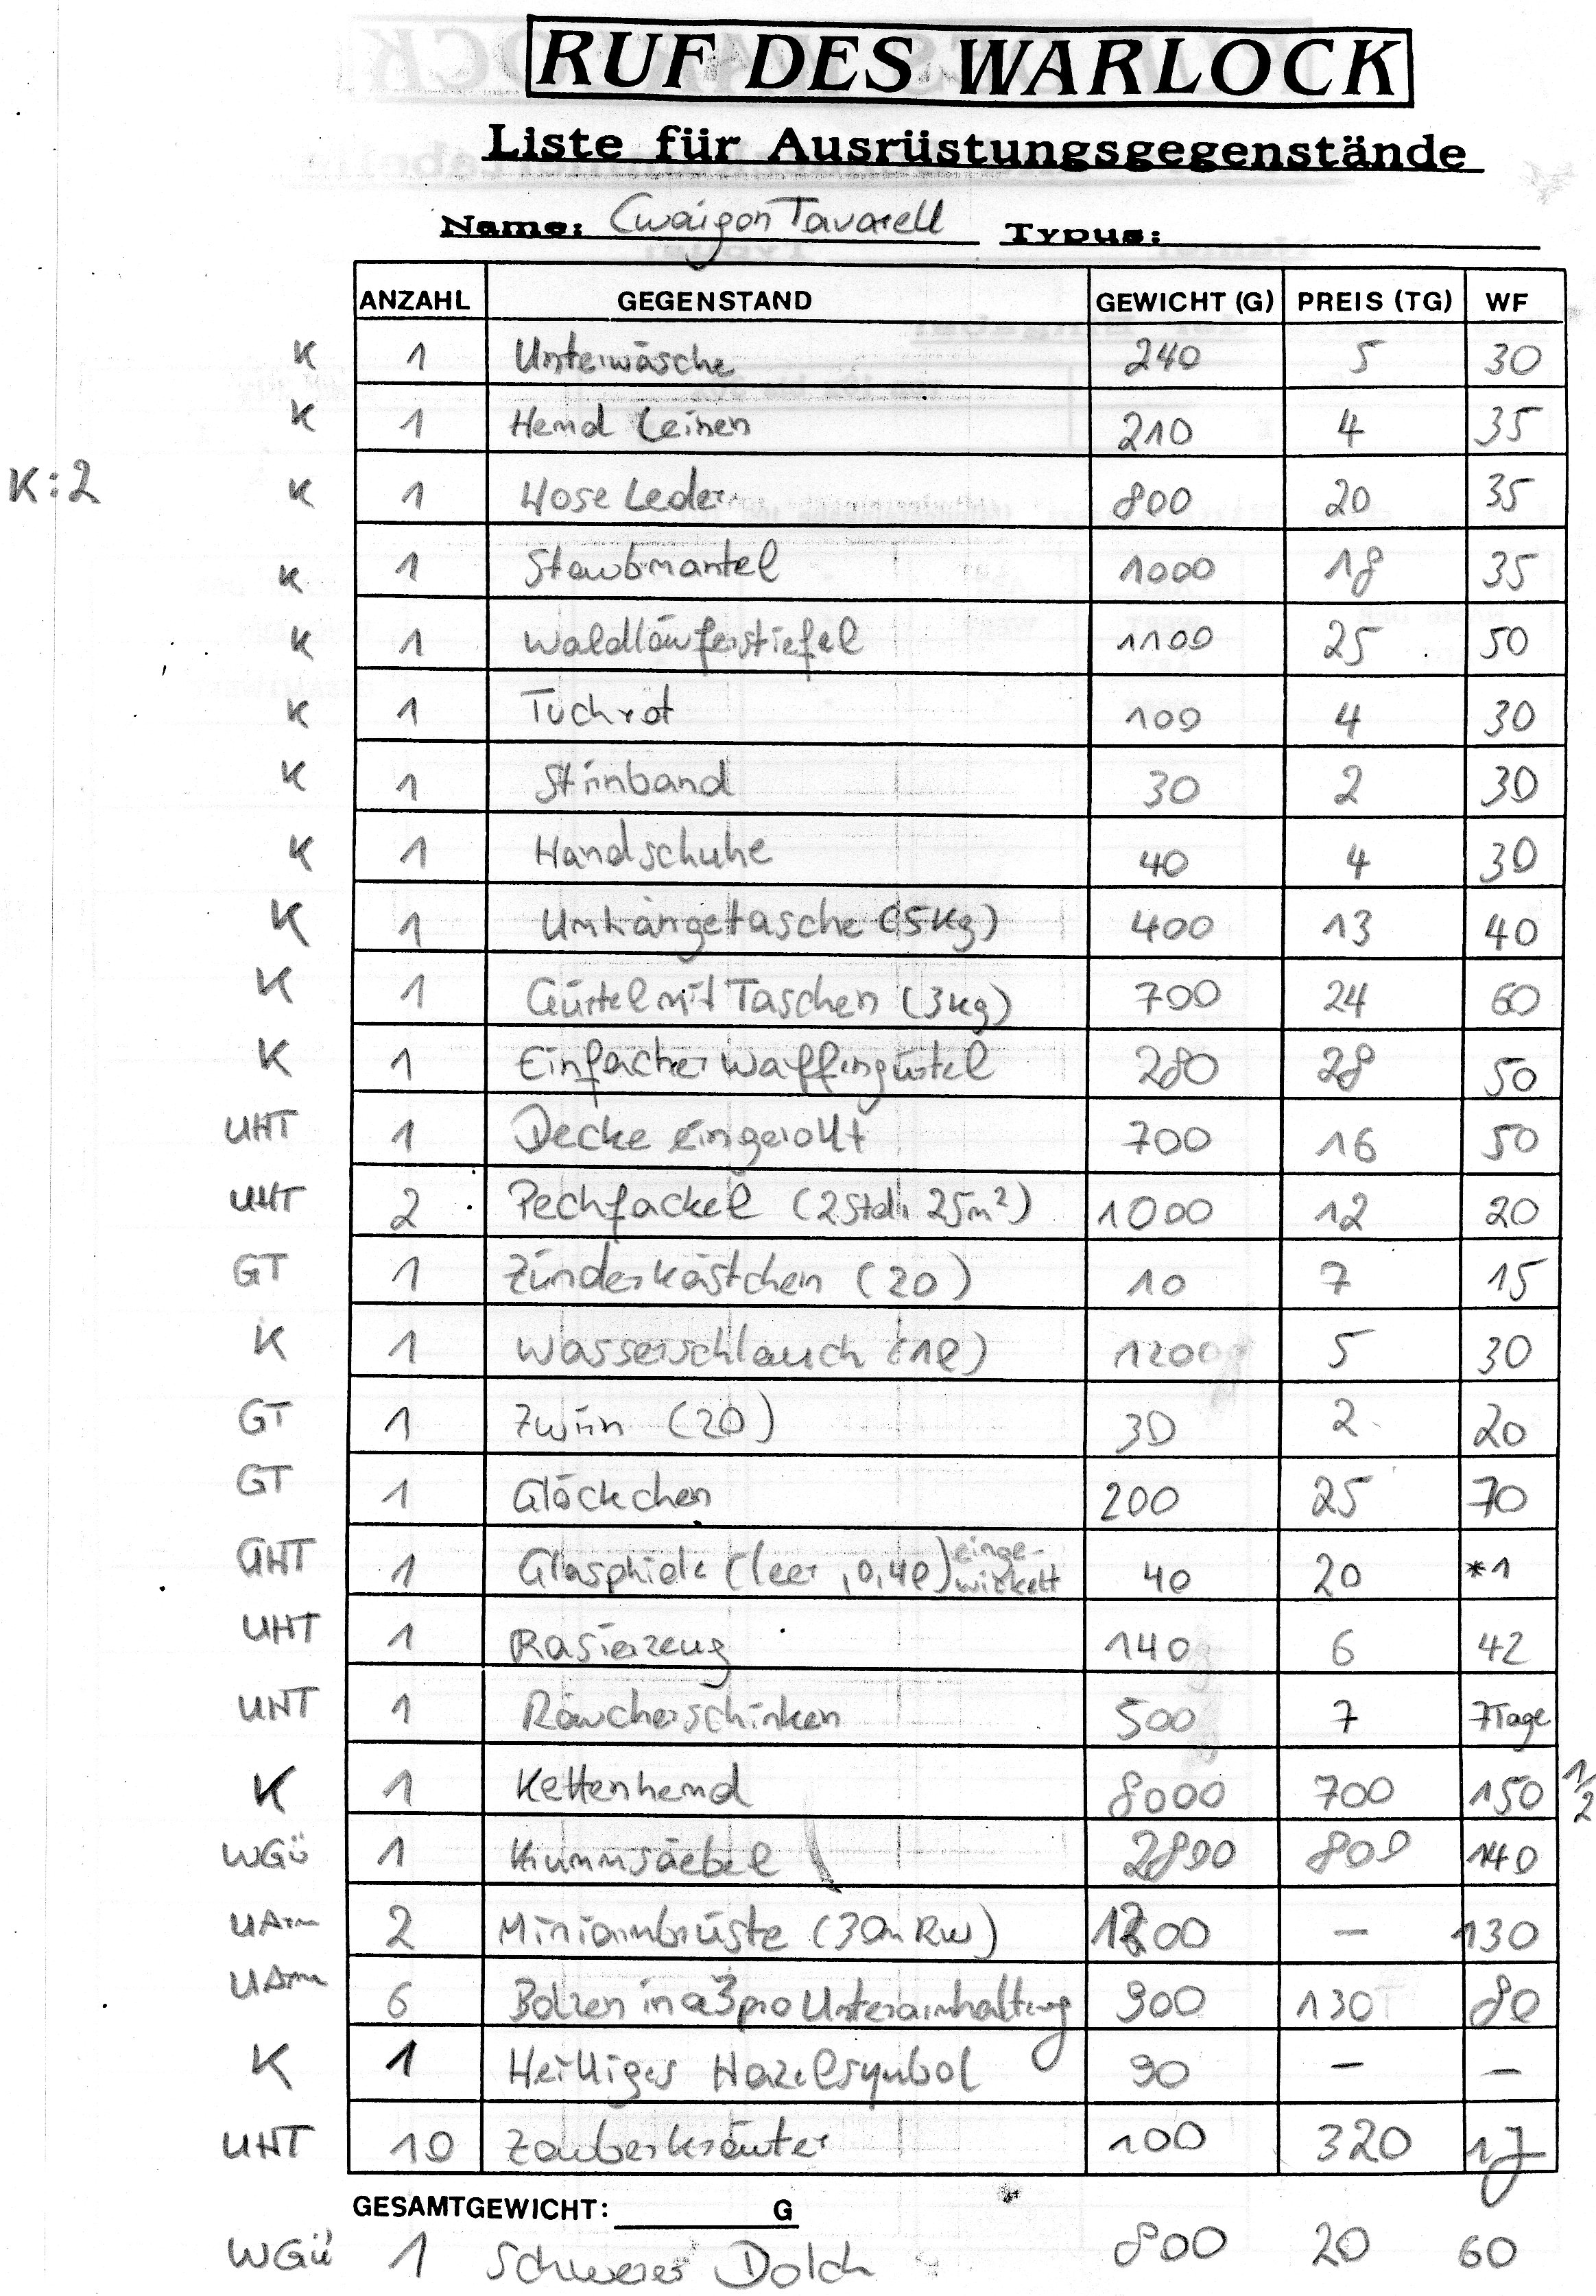 RUF DES WARLOCK
Liste für Ausrüstungsgegenstände
Name: Cwaigon Tavarell Typus:
ANZAHL GEGENSTAND GEWICHT (G) PREIS (TG) WF
K 1 Unterwäsche 240 5 30
K 1 Hemd Leinen 210 4 35
K:2 K 1 Hose Leder 800 20 35
K 1 Staubmantel 1000 18 35
K 1 Waldläuferstiefel 1100 25 50
K 1 Tuch rot 100 4 30
K 1 Stirnband 30 2 30
K 1 Handschuhe 40 4 30
K 1 Umhängetasche (5Kg) 400 13 40
K 1 Gürtel mit Taschen (3Kg) 700 24 60
K 1 Einfacher Waffengürtel 280 28 50
UHT 1 Decke eingerollt 700 16 50
UHT 2 Pechfackel (2Std. 25m²) 1000 12 20
GT 1 Zünderkästchen (20) 10 7 15
K 1 Wasserschlauch (1l) 1200 5 30
GT 1 Zwirn (20) 30 2 20
GT 1 Glöckchen 200 25 70
GHT 1 Glasphiole (leer, 0,4l) einge-
wickelt 40 20 *1
UHT 1 Rasierzeug 140 6 42
UHT 1 Räucherschinken 500 7 7Tage
K 1 Kettenhemd 8000 700 150 1/2
WGü 1 Krummsäebel 2800 800 140
UArm 2 Miniarmbrüste (30m RW) 1200 — 130
UArm 6 Bolzen in a 3 pro Unterarmhaltung 900 130 80
K 1 Heiliges Hazelsymbol 90 — —
UHT 10 Zauberkräuter 100 320 1J
GESAMTGEWICHT: G
WGü 1 Schwerer Dolch 800 20 60